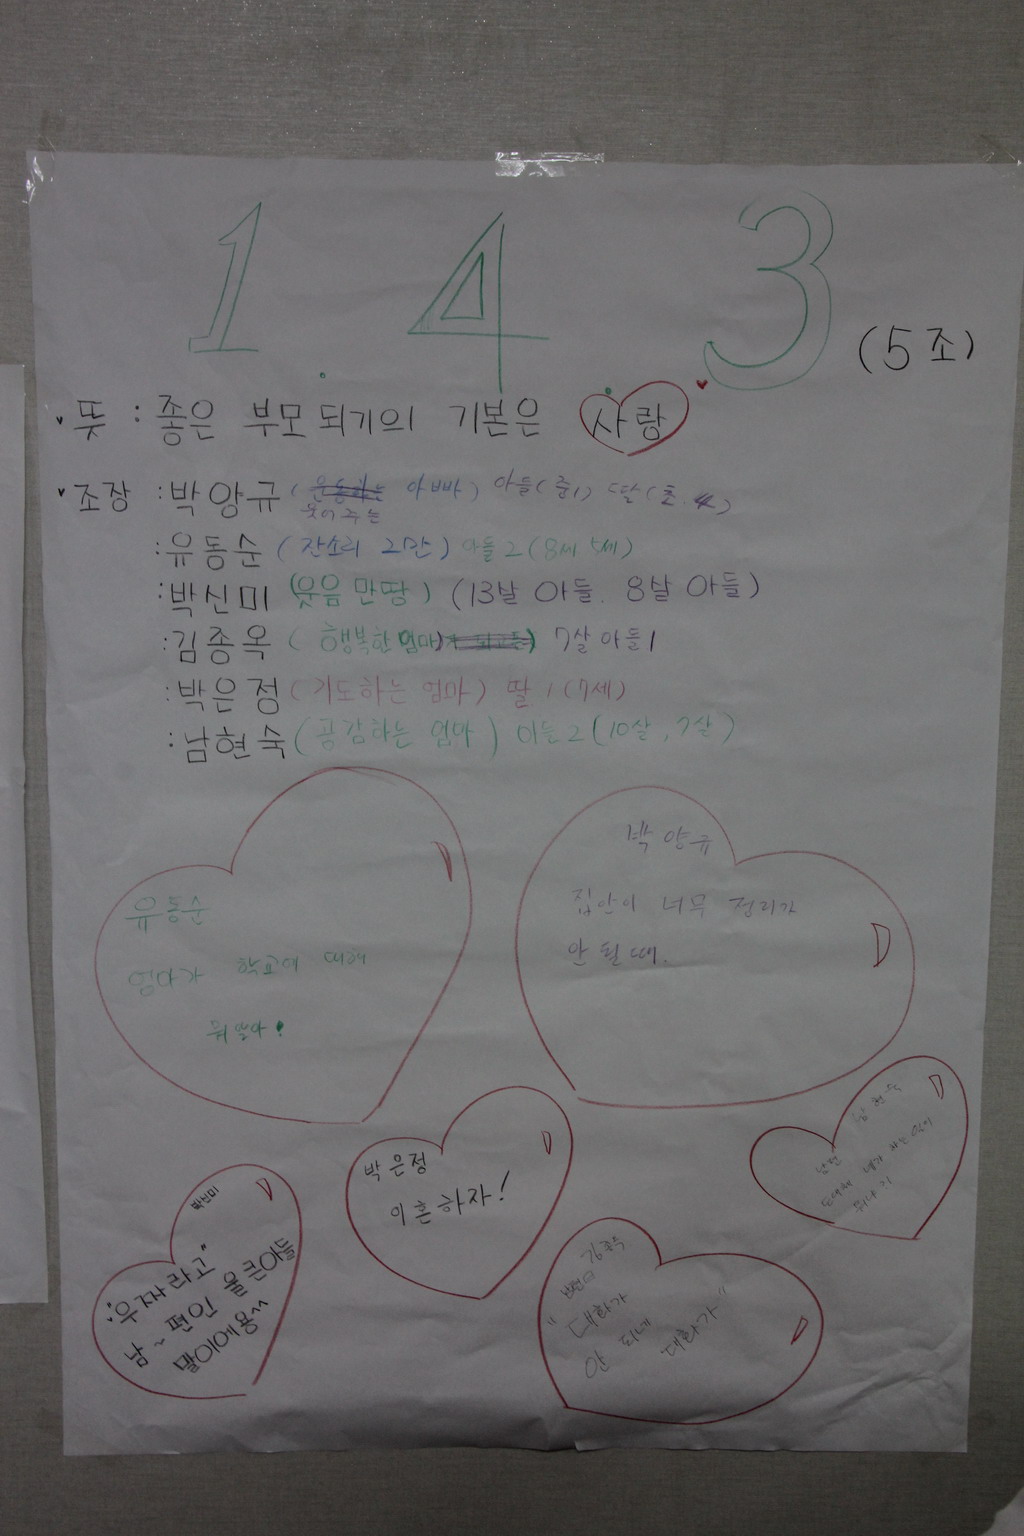 1. 4. 3
(5조)
뜻 : 좋은 부모되기의 기본은 사랑
조장 : 박양규 (웃어주는 아빠) 아들(중1) 딸(초.4)
: 유동순 (잔소리 2만) 아들2 (8세 5세)
: 박신미 (웃음만땅) (13살 아들. 8살 아들)
: 김종옥 (행복한 엄마) 7살 아들1
: 박은정 (기도하는 엄마) 딸 1 (7세)
: 남현숙 (공감하는 엄마) 아들2 (10살, 7살)
유동순
엄마가 학교에 대해
뭐 알아!
박양규
집안이 너무 정리가
안 될 때.
박은정
이혼하자!
남현숙
남편
도대체 네가 하는 일이
뭐냐
박신미
"무자라고"
남~편인 울 큰아들
말이에용~~
김종옥
"대화가
안 되네
대화가"